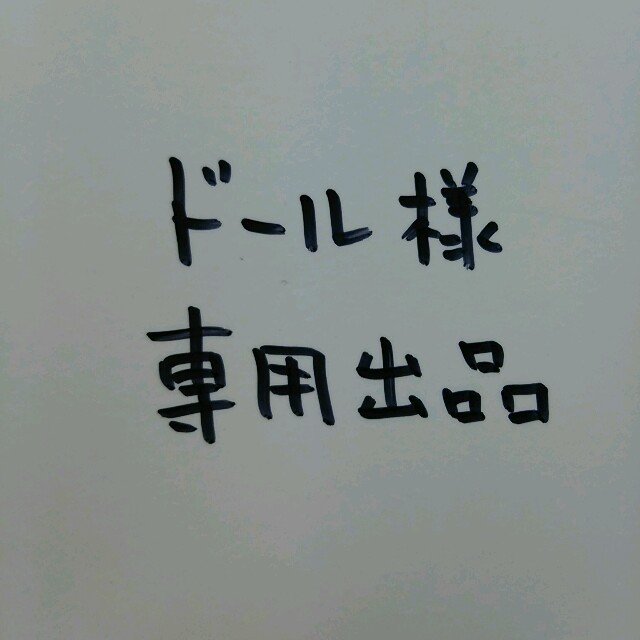 ドール様
専用出品